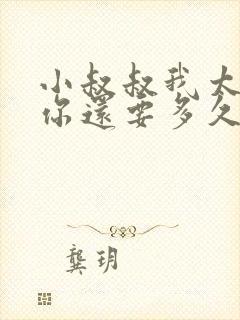 小叔叔我太
你還要多久
龔玥